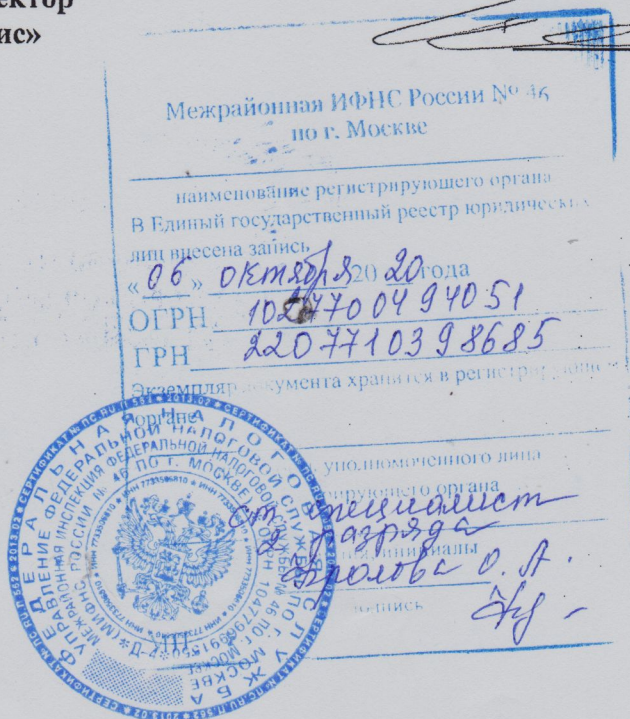 ектор
ис»
Межрайонная ИФНС России № 46
по г. Москве
наименование регистрирующего органа
В Единый государственный реестр юридических
лиц внесена запись
«06» октября 2020 года
ОГРН 1027700494051
ГРН 2207710398685
Экземпляр документа хранится в регистрирующем
органе
уполномоченного лица
регистрирующего органа
ст. специалист
2 разряда
инициалы
Фролова О. А.
подпись
ФЕДЕРАЛЬНАЯ НАЛОГОВАЯ СЛУЖБА
УПРАВЛЕНИЕ ФЕДЕРАЛЬНОЙ НАЛОГОВОЙ СЛУЖБЫ ПО Г. МОСКВЕ
МЕЖРАЙОННАЯ ИНСПЕКЦИЯ ФЕДЕРАЛЬНОЙ НАЛОГОВОЙ СЛУЖБЫ № 46 ПО Г. МОСКВЕ